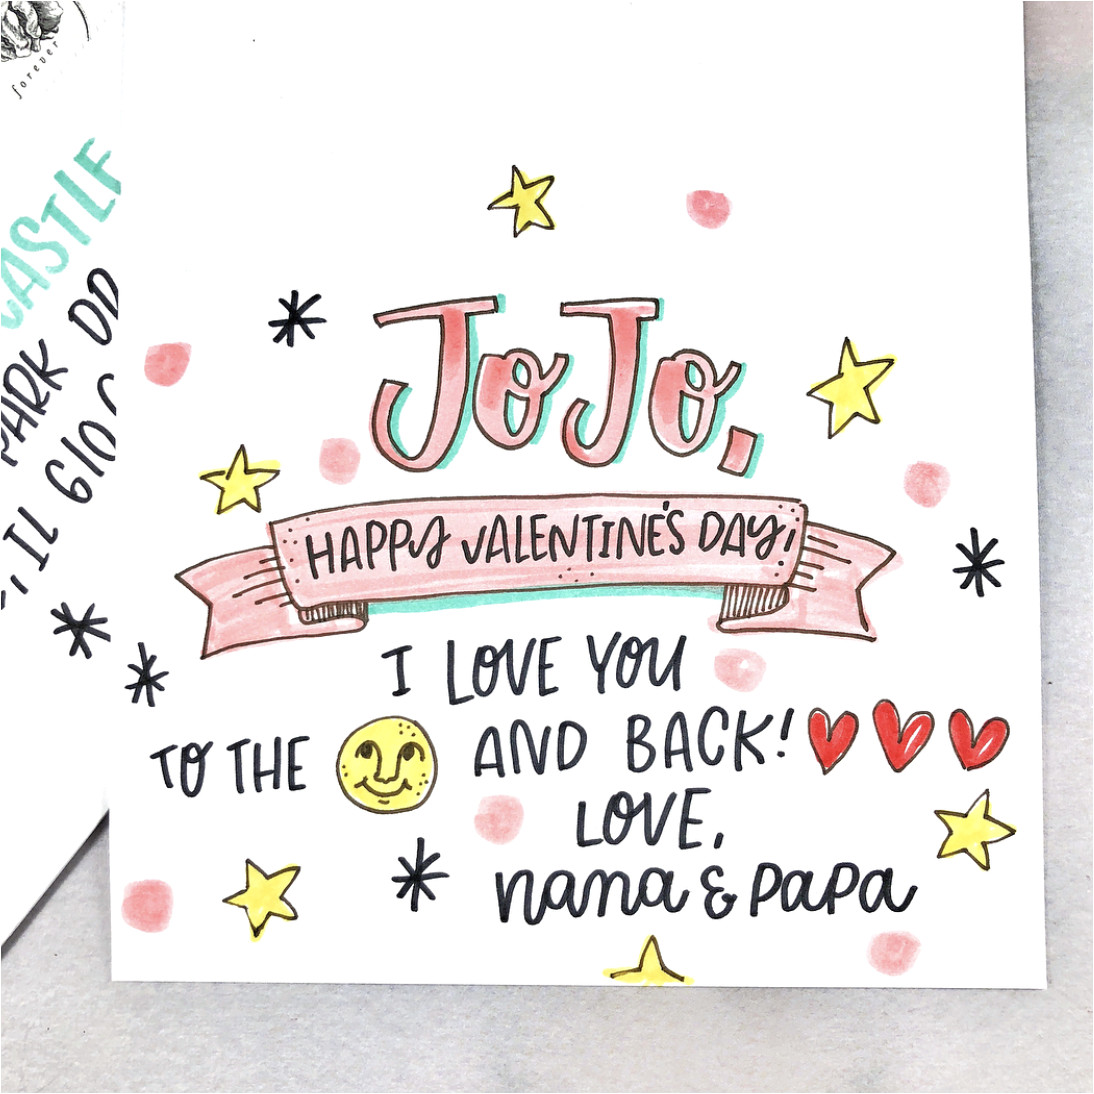 forever
PARK
IL
JoJo,
HAPPY VALENTINE'S DAY,
I LOVE YOU
TO THE AND BACK!
LOVE,
nana & PAPA